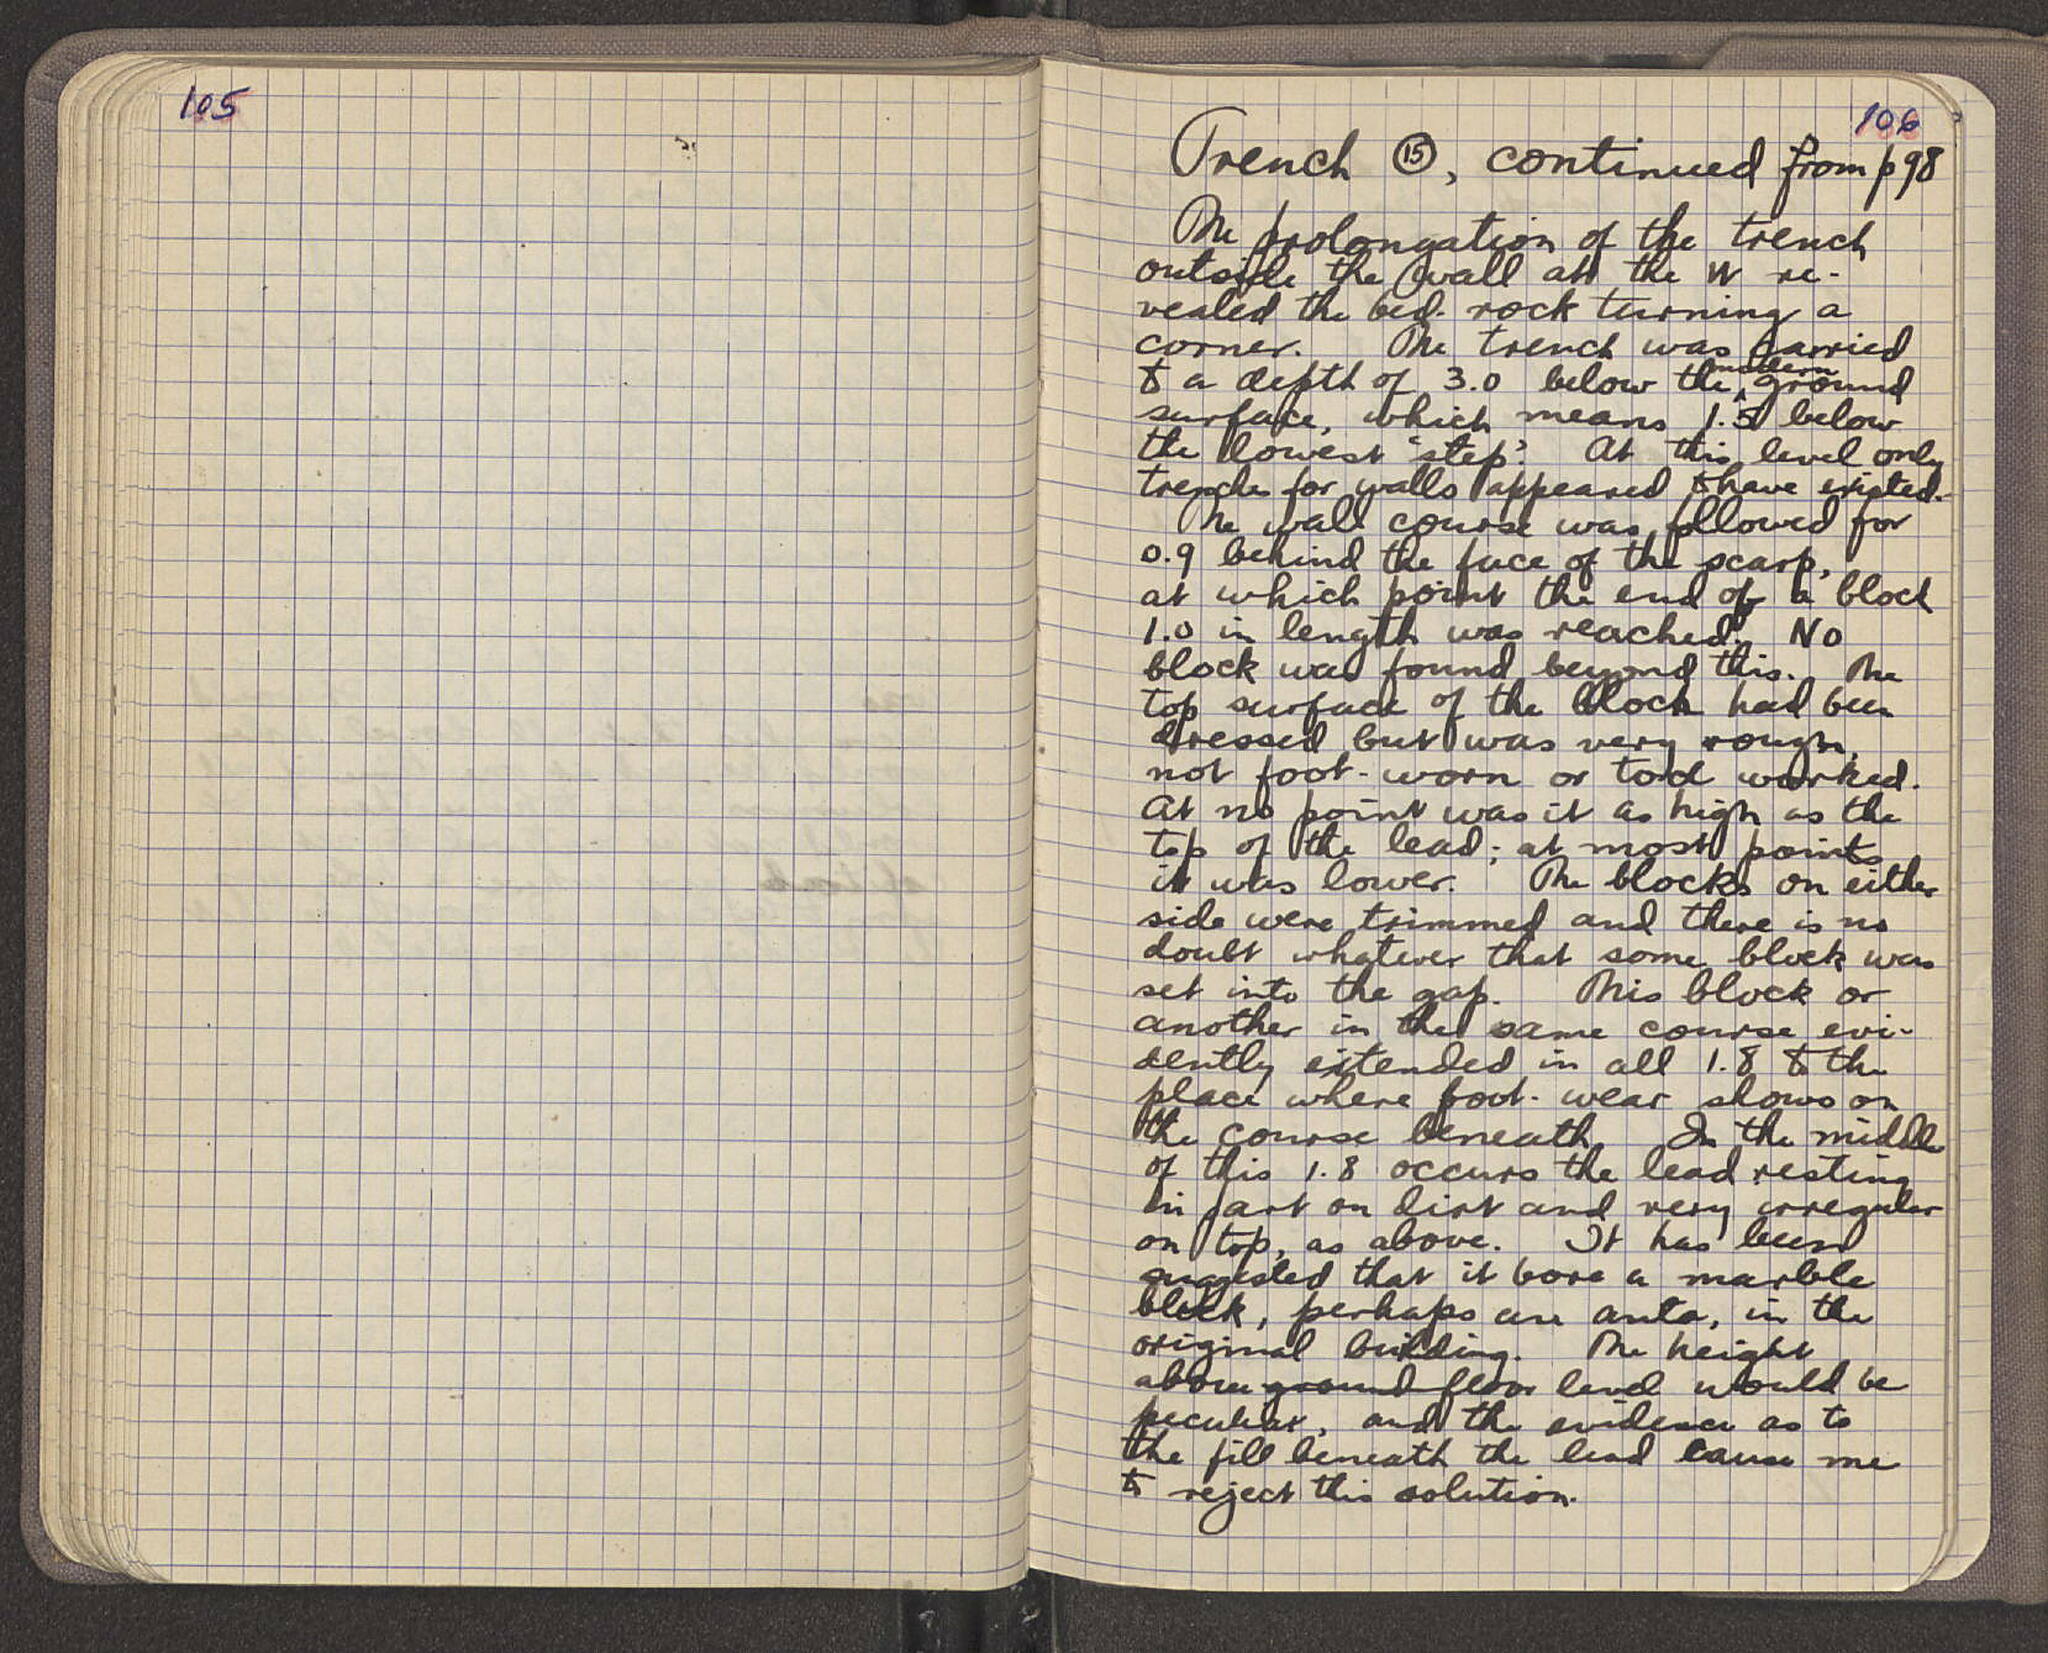 105
106
Trench ⑮, continued from p 98
The prolongation of the trench
outside the wall at the W re-
vealed the bed-rock turning a
corner. The trench was carried
to a depth of 3.0 below the modern ground
surface, which means 1.5 below
the lowest "step". At this level only
trenches for walls appeared to have existed.
The wall course was followed for
0.9 behind the face of the scarp,
at which point the end of a block
1.0 in length was reached. No
block was found beyond this. The
top surface of the block had been
dressed but was very rough,
not foot-worn or tool worked.
At no point was it as high as the
top of the lead; at most points
it was lower. The blocks on either
side were trimmed and there is no
doubt whatever that some block was
set into the gap. This block or
another in the same course evi-
dently extended in all 1.8 to the
place where foot-wear shows on
the course beneath. In the middle
of this 1.8 occurs the lead resting
in part on dirt and very irregular
on top, as above. It has been
suggested that it bore a marble
block, perhaps an anta, in the
original building. The height
above ground floor level would be
peculiar, and the evidence as to
the fill beneath the lead cause me
to reject this solution.